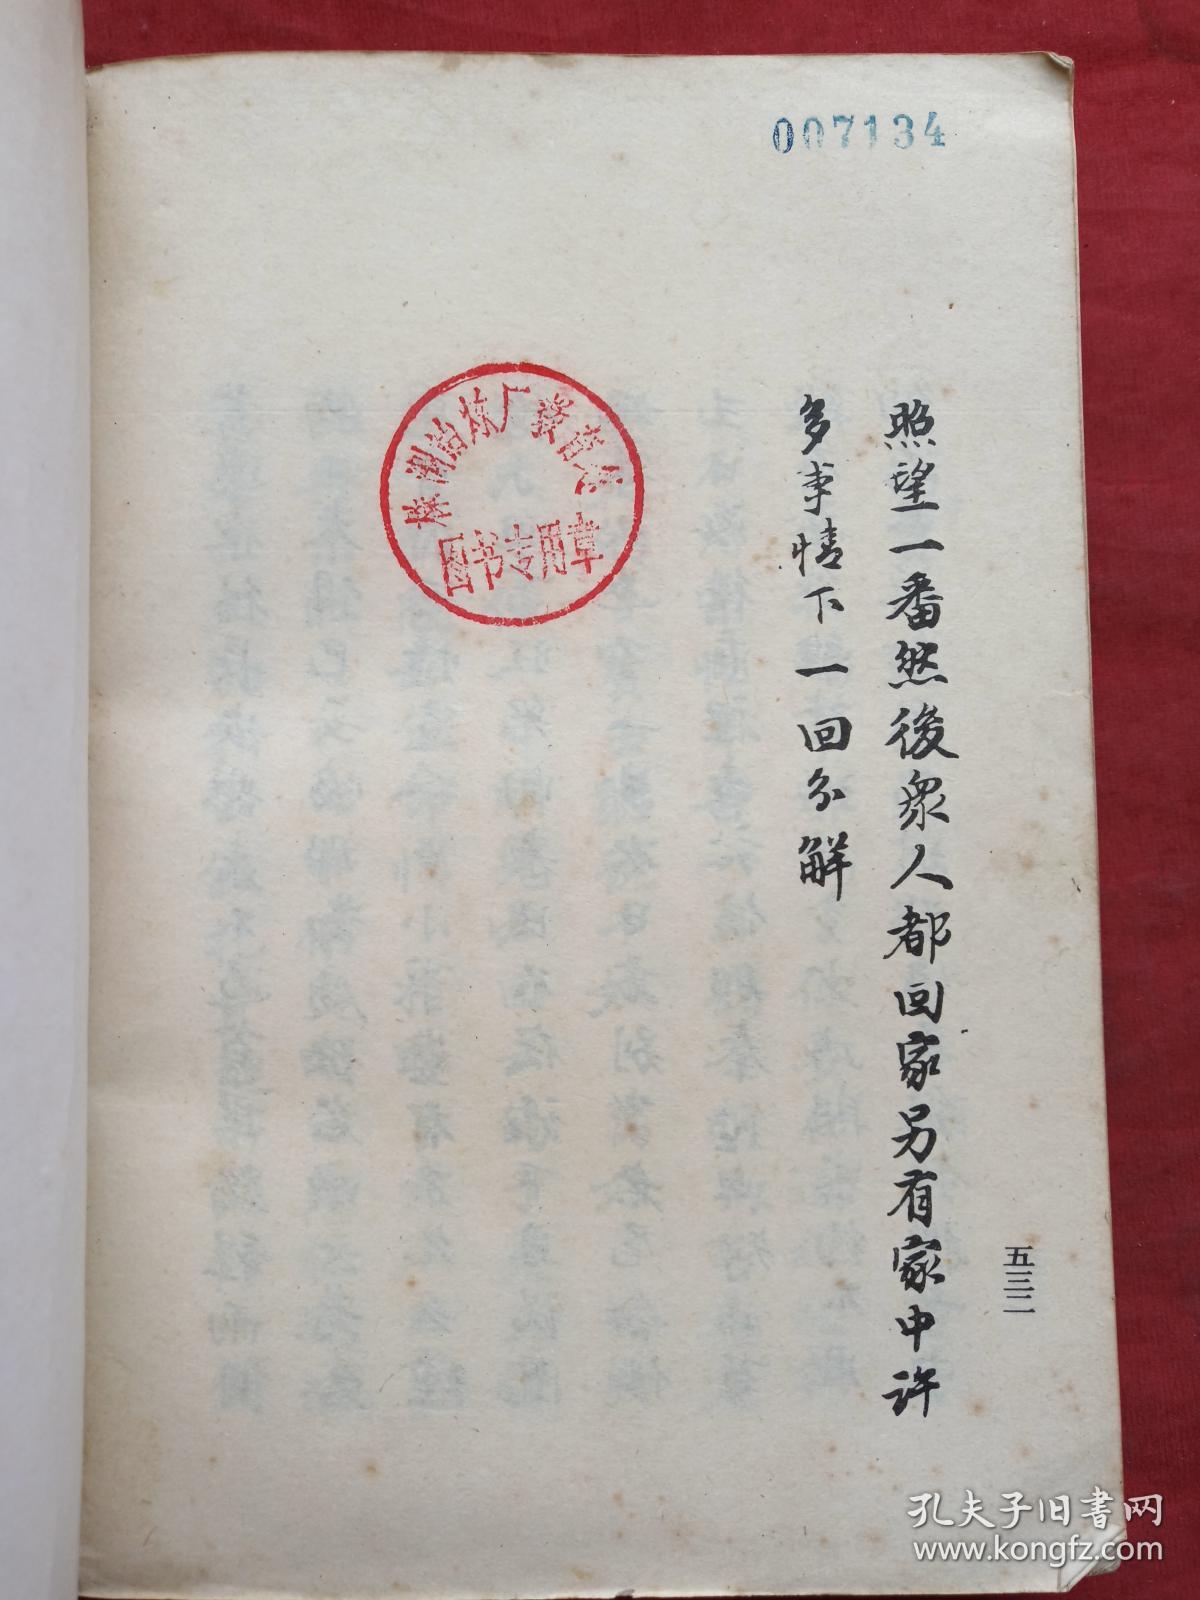 007134
照望一番然後衆人都回家另有家中許
多事情下一回分解
五三二
株洲冶炼厂教育处
图书专用章
孔夫子旧书网
www.kongfz.com